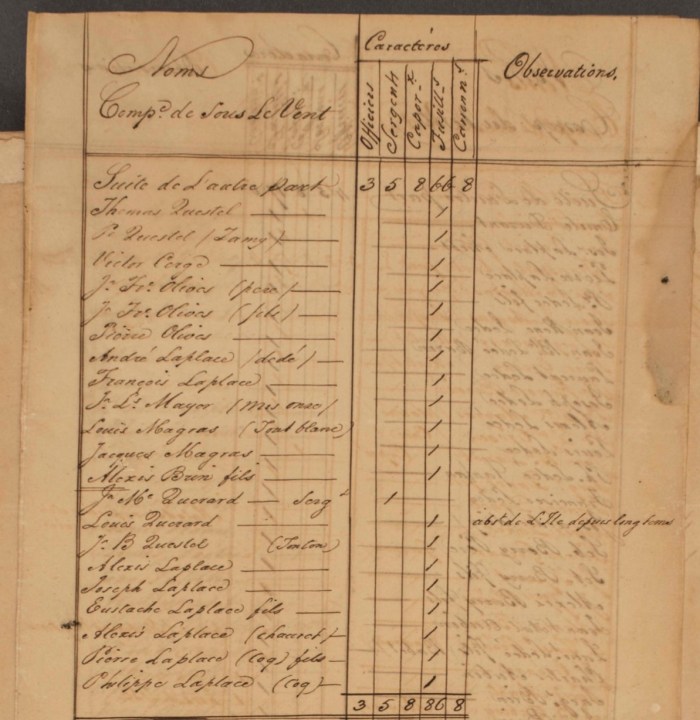 Noms
Compe. de Sous Le Vent
Caractéres
Officiers
Sergents
Capor.x
Fusill.s
Canonn.s
Observations.
Suite de L'autre part 3 5 8 66 8
Thomas Questel 1
Pe. Questel (Tamy) 1
Victor Corge 1
Jn. Frs. Olives (pere) 1
Jn. Frs. Olives (fils) 1
Pierre Olives 1
André Laplace (dédé) 1
François Laplace 1
Jn. Ls. Mayer 1
Louis Magras 1
Jacques Magras 1
Alexis Brin fils 1
Jn. Me. Querard Sergt 1
Louis Querard 1 abst. de L'Ile depuis longtems
Jn. B Questel (Tonton) 1
Alexis Laplace 1
Joseph Laplace 1
Eustache Laplace fils 1
Alexis Laplace 1
Pierre Laplace (Coq) fils 1
Philippe Laplace (Coq) 1
3 5 8 86 8